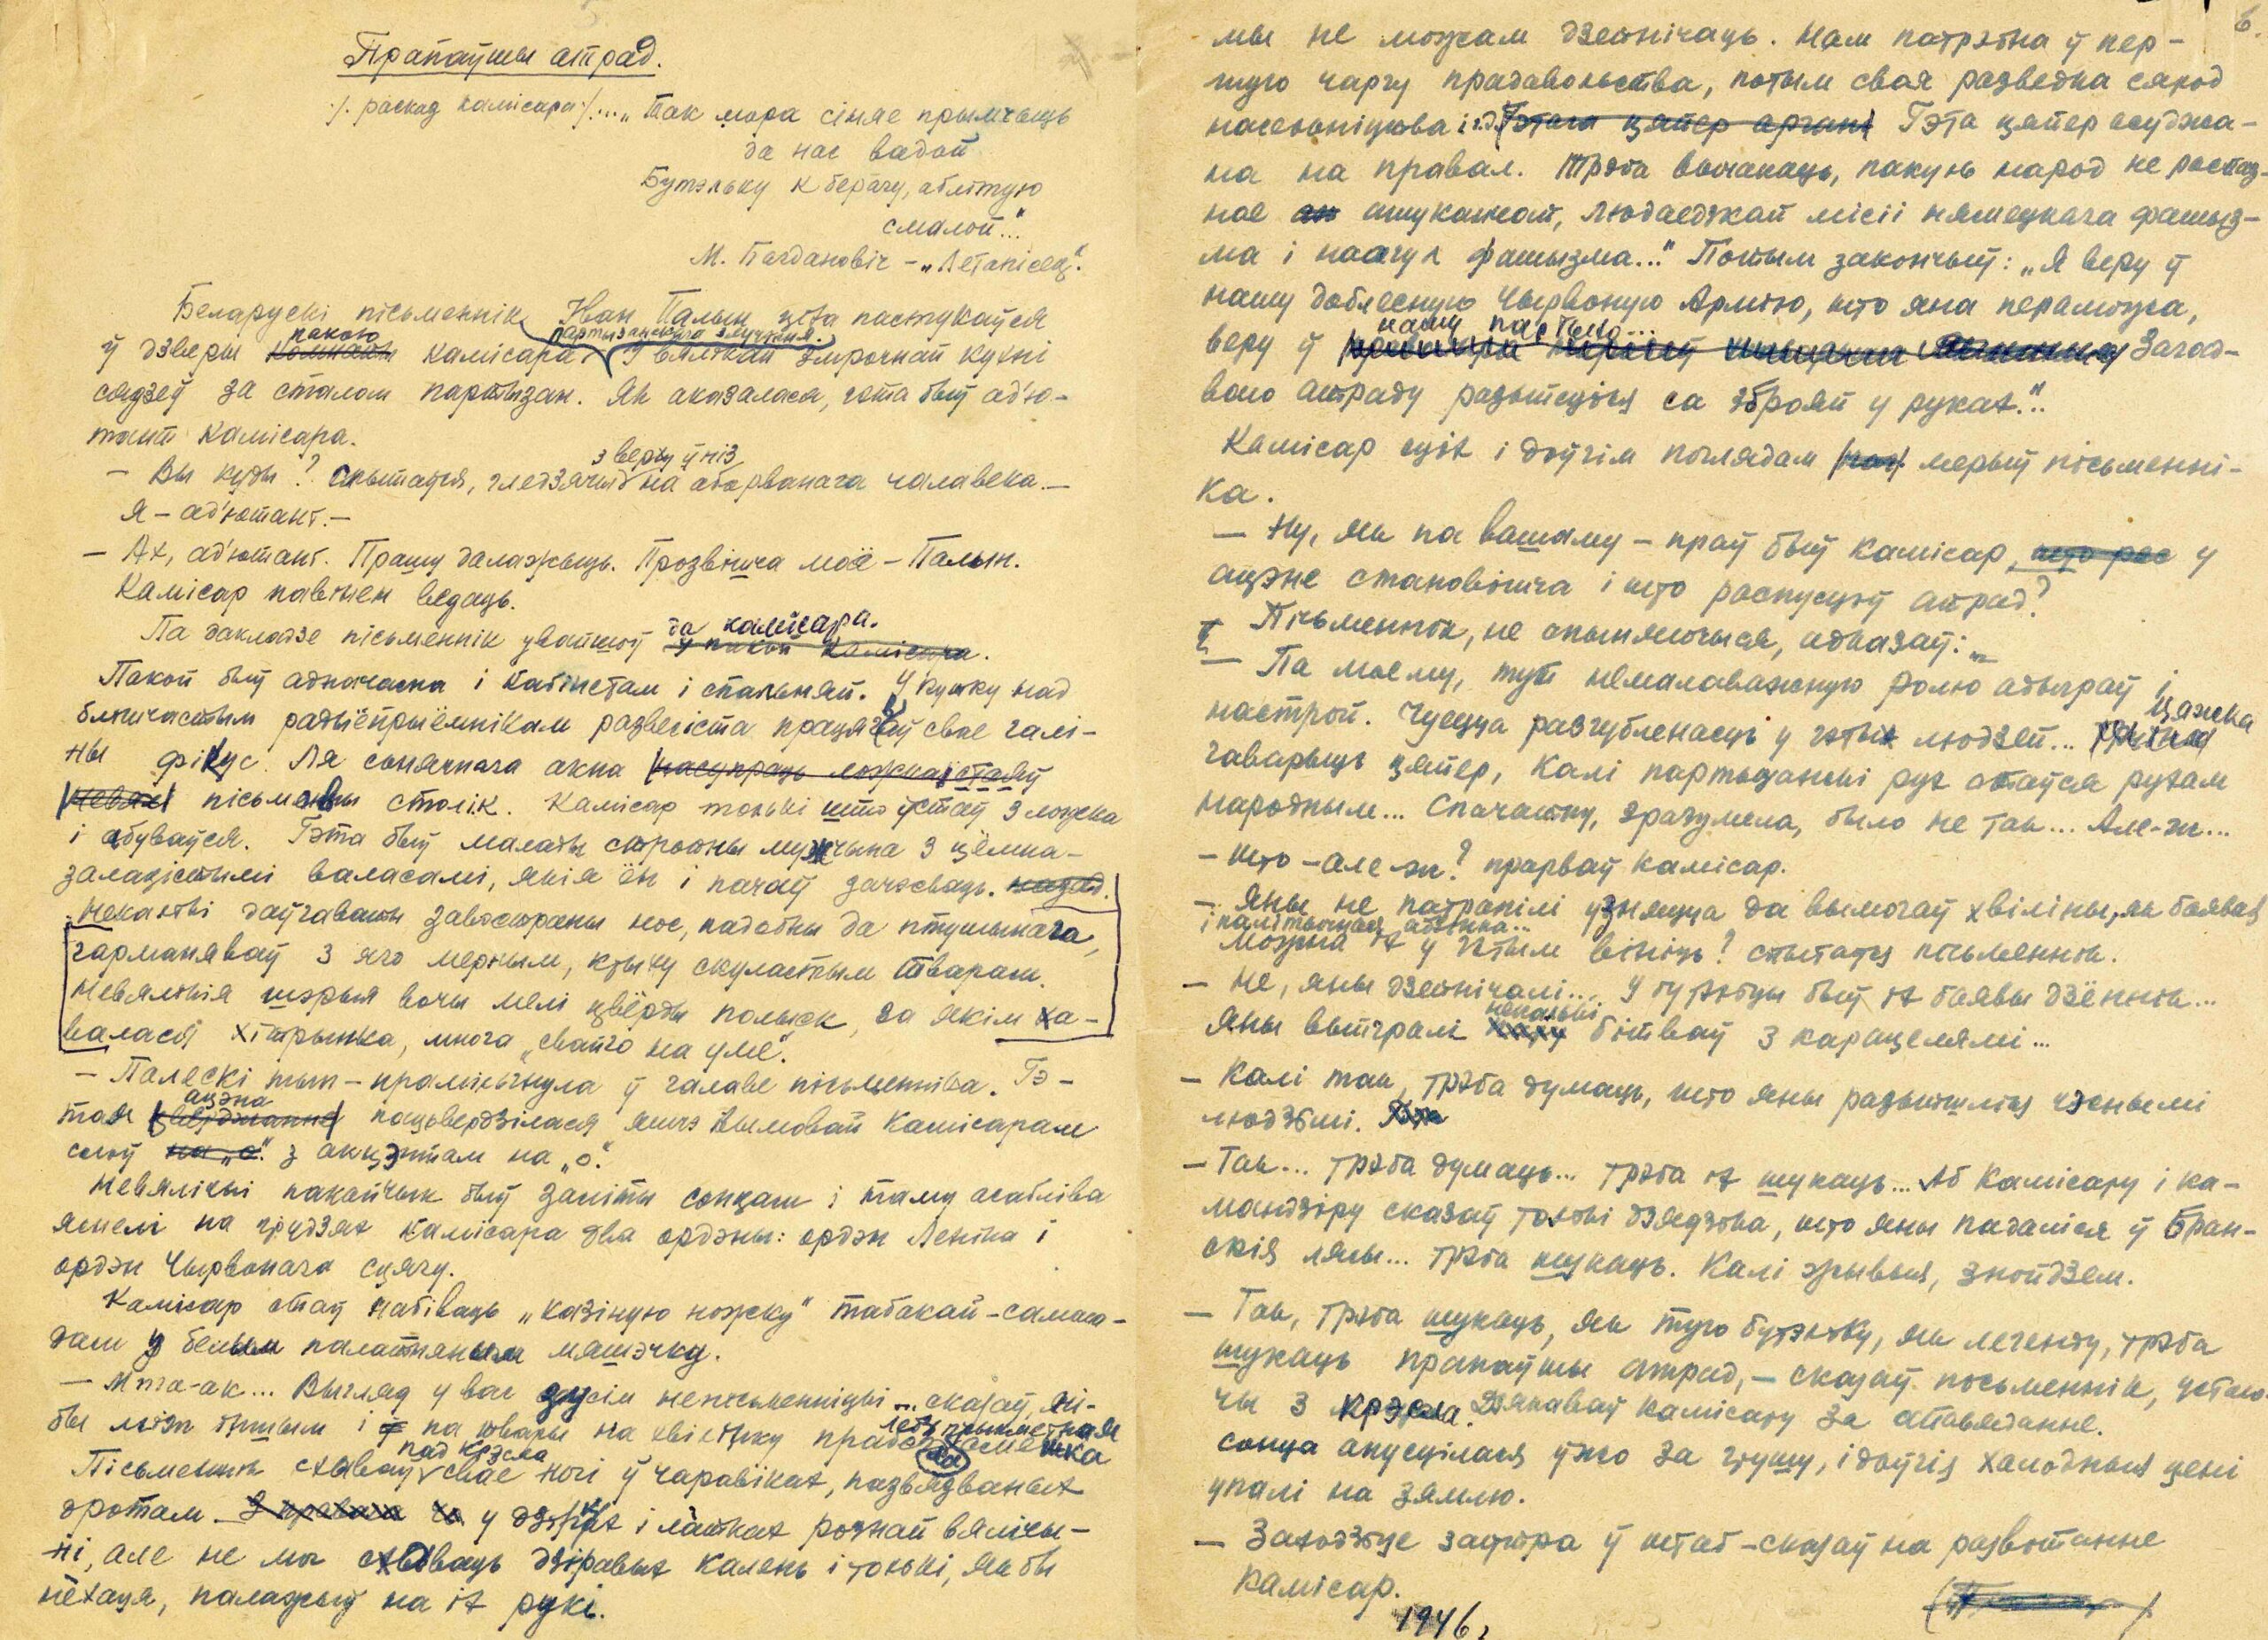 Прапаўшы атрад.
/. расказ камісара/.... „Так мора сіняе прымчыць
да нас вадой
Бутэльку к берагу, аблітую
смалой..."
М. Багдановіч – „Летапісец".
Беларускі пісьменнік Іван Палын ціха пастукаўся
пакою партызанскага злучэння.
ў дзверы комнаты камісара. У вялікай змрочнай кухні
сядзеў за сталом партызан. Як аказалася, гэта быў ад'ю-
тант камісара.
зверху ўніз
– Вы куды? спытаўся, гледзячы на абарванага чалавека. –
Я – ад'ютант. –
– Ах, ад'ютант. Прашу далажыць. Прозвішча маё – Палын.
Камісар павінен ведаць.
да камісара.
Па дакладзе пісьменнік увайшоў у пакой камісара.
Пакой быў адначасна і кабінетам і спальняй. У кутку над
бліскастым радыёпрыёмнікам развесіста працягваў свае галі-
ны фікус. Ля сонячнага акна насупраць ложка стаяў
невял пісьмовы столік. Камісар толькі што ўстаў з ложка
і абуваўся. Гэта быў малады стройны мужчына з цёмна-
залацістымі валасамі, якія ён і пачаў зачэсваць. назад.
Некалькі даўгаваты завостраны нос, падобны да птушынага,
гарманяваў з яго мерным, крыху скуластым тварам.
Невялікія шэрыя вочы мелі цвёрды полыск, за якім ха-
валася хітрынка, многа „свайго на уме".
– Палескі тып – прамільгнула ў галаве пісьменніка. Гэ-
ацэна
тая цверджанне пацьвердзілася яшчэ вымовай камісарам
слоў на „о". з акцэнтам на „о".
Невялічкі пакойчык быў заліты сонцам і таму асабліва
яснелі на грудзях камісара два ордэны: ордэн Леніна і
ордэн Чырвонага сцягу.
Камісар стаў набіваць „казіную ножку" табакай-самаса-
дам у белым палатняным мяшэчку.
– М-та-ак... Выгляд у вас зусім непісьменніцкі... сказаў, ні-
бы між іншым і на твары на хвілінку
ледзь прыкметная
пад крэсла
Пісьменнік схаваў свае ногі ў чаравіках, пазвязваных
дротам у дзірках і латках рознай велічы-
ні, але не мог схаваць дзіравых кален і толькі, як бы
нехаця, палажыў на іх рукі.
6.
мы не можам дзейнічаць. Нам патрэбна ў пер-
шую чаргу прадавольства, потым свая разведка сярод
насельніцтва і г.д. Гэтага цяпер арган Гэта цяпер асуджа-
на на правал. Трэба вычакаць, пакуль народ не распаз-
нае ашуканай, людаедскай місіі нямецкага фашыз-
ма і наогул фашызма..." Потым закончыў: „Я веру ў
нашу доблесную Чырвоную Армію, што яна пераможа,
нашу
веру ў Загад-
ваю атраду разыйсціся са зброяй у руках."..
Камісар сціх і доўгім поглядам мерыў пісьменні-
ка.
– Ну, як па вашаму – праў быў камісар, што рас у
ацэне становішча і што распусціў атрад?
Пісьменнік, не спыняючыся, адказаў:
– Па моему, тут немалаважную ролю адыграў і
настрой. Чуецца разгубленасць у гэтых людзей... цяжка
гаварыць цяпер, калі партызанскі рух стаўся рухам
народным... Спачатку, зразумела, было не так... Але-ж...
– Што – але ж? прарваў камісар.
– Яны не патрапілі узняцца да вымогаў хвіліны, як баявая
і палітычная адзінка...
Можна іх у гэтым вініць? спытаўся пісьменнік.
– Не, яны дзейнічалі.... У бутэльцы быў іх баявы дзённік...
некалькі
Яны выйгралі бітваў з карацелямі...
– Калі так, трэба думаць, што яны разыйшліся чэснымі
людзьмі.
– Так... трэба думаць... трэба іх шукаць... Аб камісару і ка-
мандзіру сказаў толькі дзядзька, што яны падаліся ў Бран-
скія лясы... трэба шукаць. Калі жывыя, знойдзем.
– Так, трэба шукаць, як тую бутэльку, як легенду, трэба
шукаць прапаўшы атрад, – сказаў пісьменнік, устаю-
чы з крэсла. Дзякаваў камісару за апавяданне.
Сонца апусцілася ўжо за грушу, і доўгія халодныя цені
упалі на зямлю.
– Заходзьце заўтра ў штаб – сказаў на развітанне
камісар.
1946 г.